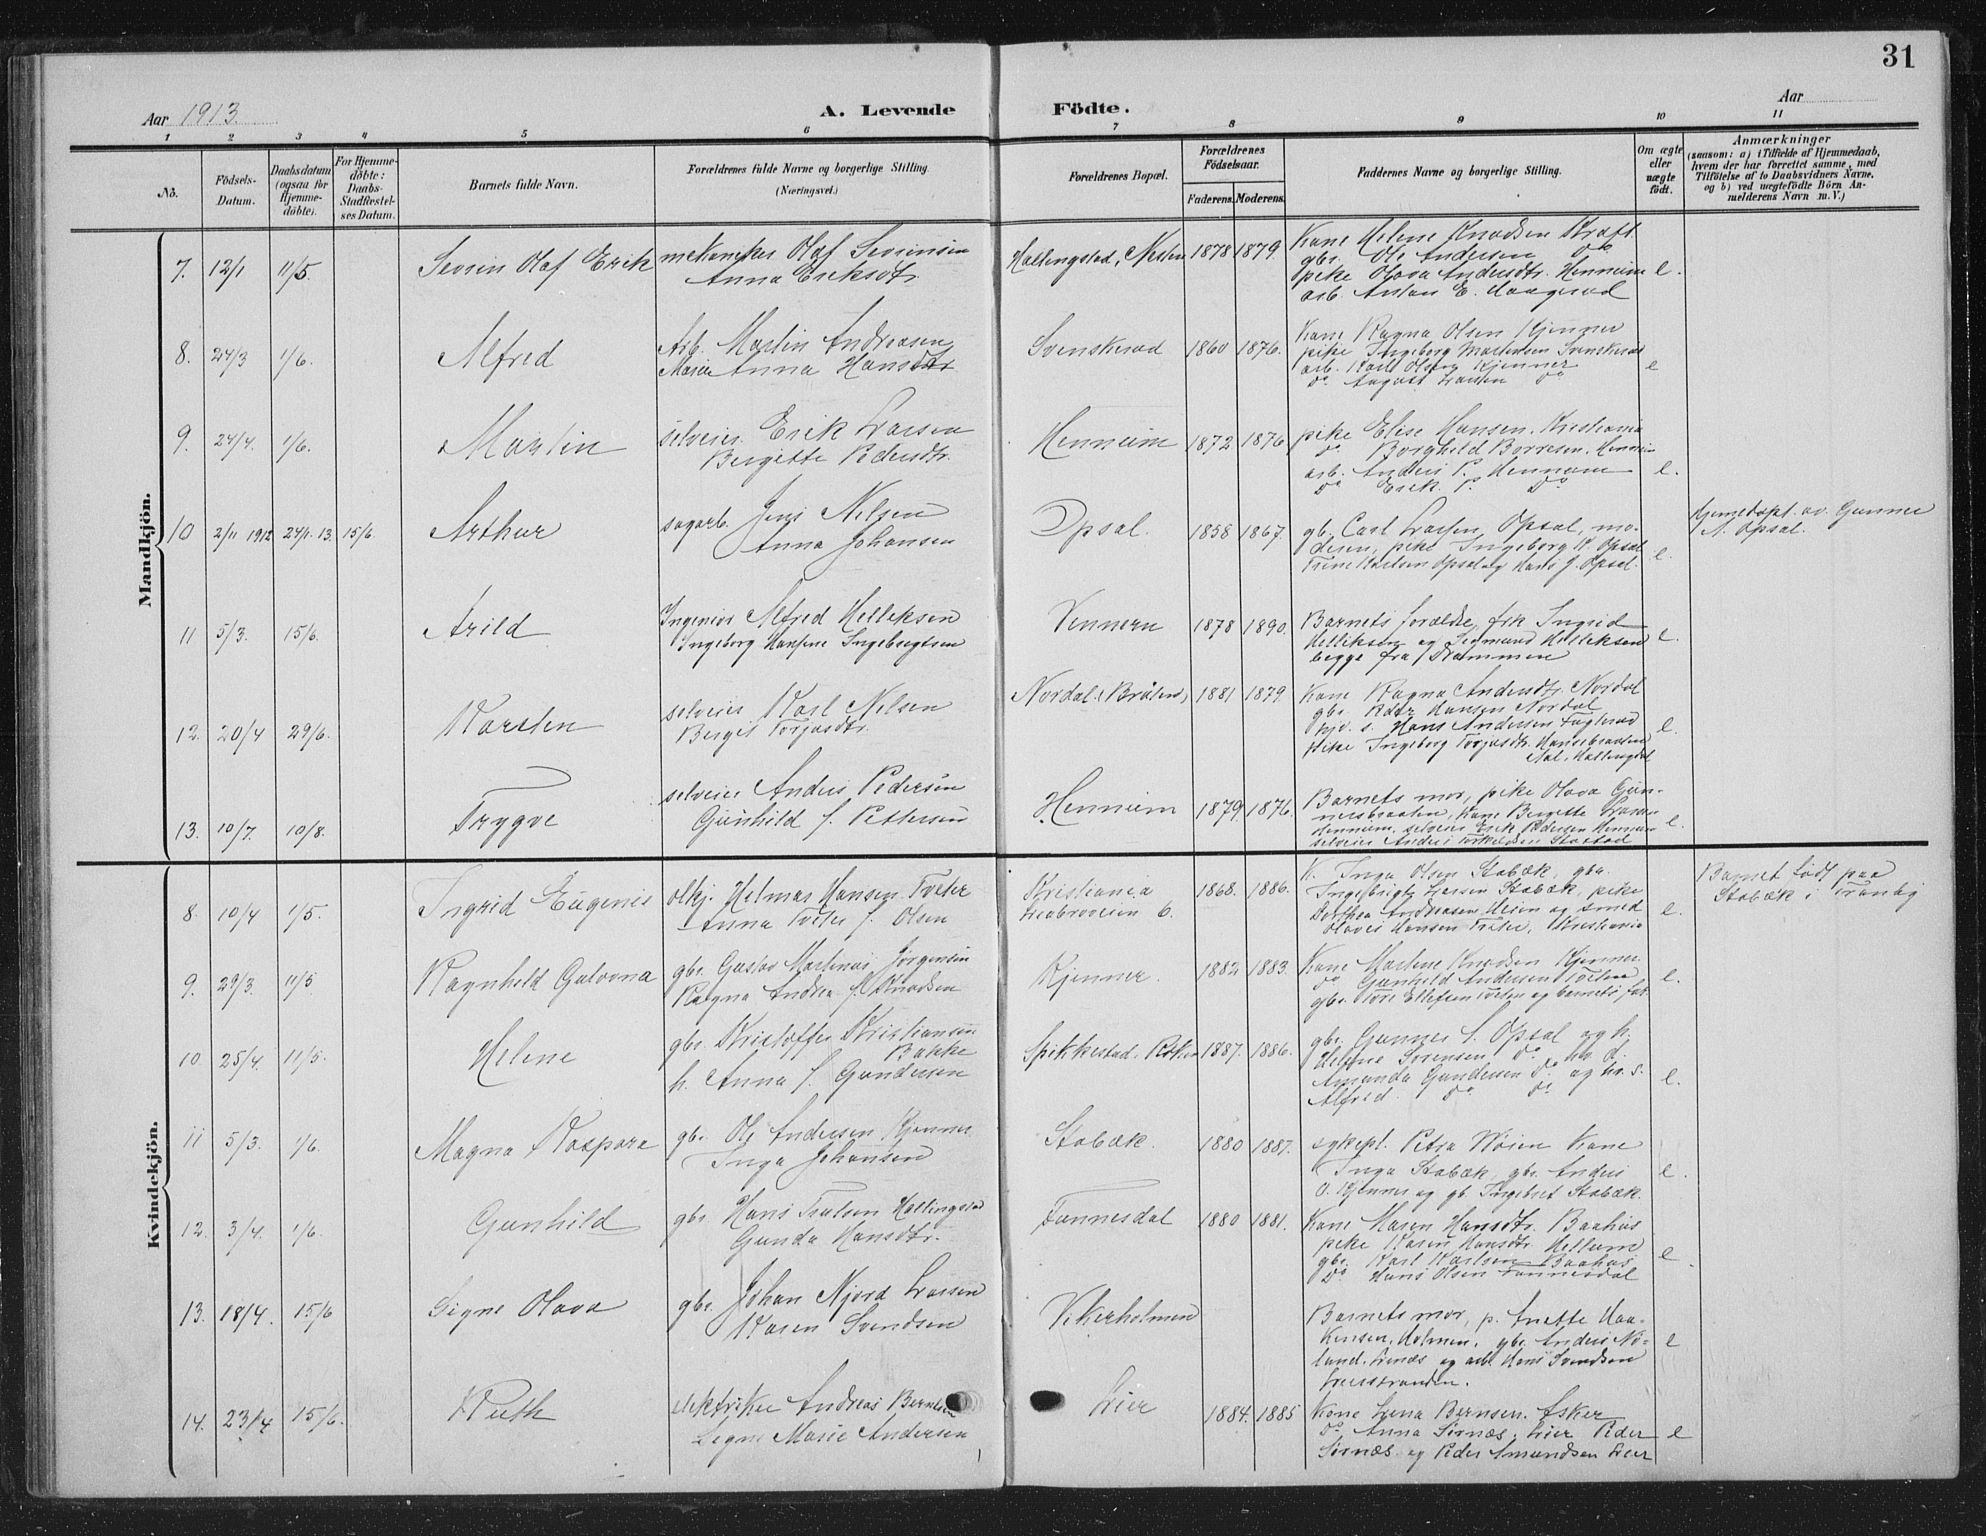 31
Aar 1913
A. Levende Födte.
Aar
1 2 3 4 5 6 7 8 9 10 11
No.
Födsels-Datum.
Daabsdatum (ogsaa for Hjemme-döbte).
For Hjemme-döbte: Daabs-Stadfæstel-ses Datum.
Barnets fulde Navn.
Forældrenes fulde Navne og borgerlige Stilling. (Næringsvei.)
Forældrenes Bopæl.
Forældrenes Födselsaar.
Faderens. Moderens.
Faddernes Navne og borgerlige Stilling.
Om ægte eller uægte födt.
Anmærkninger
(saasom: a) i Tilfælde af Hjemmedaab, hvem der har forrettet samme, med Tilföielse af to Daabsvidners Navne, og b) ved uægtefödte Börn An-melderens Navn m. V.)
Mandkjön.
7. 12/1 11/5. Sevrin Olaf Erik
mekaniker Olaf Sevrinsen
Anna Eriksdtr.
Hallingstad, Nesten 1878 1879.
Kone Helene Knudsen Kraft
gbr. Ole Andersen do
pike Olava Andersdtr. Hennum e.
arb. Anton E. Haagerud
8. 24/3 1/6. Alfred
Arb. Martin Andreasen
Maren Anna Hansdtr
Svenskerud 1860 1876.
Kone Ragna Olsen Kjenner
pike Ingeborg Martinsen Svenskerud
arb. Karl Olsen Kjenner e
do August Larsen do
9. 24/4. 1/6. Martin
selveier Erik Larsen
Bergitte Pedersdtr.
Hennum 1872 1876
pike Elise Hansen. Kristiania
do Borghild Borresen. Hennum
arb. Anders P. Hennum e.
do Erik P. do
10 2/11 1912 24/1. 13. 15/6. Arthur
sagarb. Jens Nilsen
Anna Johansen
Opsal. 1858 1867.
gb. Carl Larsen Opsal, mo-
deren, pike Ingeborg N. Opsal e.
Trine Karlsen Opsal og Hans J. Opsal.
Hjemedøpt av Gunner
N. Opsal.
11 5/3. 15/6. Arild
Ingeniør Alfred Helleksen
Ingeborg Hansine Ingebregtsen
Vennern 1878 1890.
Barnets forældre, frk Ingrid
Helliksen og Sigmund Helleksen e.
begge fra Drammen
12. 20/4 29/6. Karsten
selveier Karl Nilsen
Bergit Torjusdtr.
Nordal (Bråten) 1881 1879
Kone Ragna Andersdtr. Nordal
gbr. Peder Hansen Nordal
hjv. s. Hans Andersen Faglerud e.
pike Ingeborg Torjusdtr. Hansebraaten
Aal, Hallingdal
13. 10/7. 10/8. Trygve
selveier Anders Pedersen
Gunhild f. Pettersen
Hennum 1879 1876.
Barnets mor, pike Olava Gun-
nersbraaten, Kone Bergitte Larsen
Hennum, selveier Erik Pedersen Hennum e.
selveier Anders Torkildsen Stastad
Kvindekjön.
8. 10/4 1/5. Ingrid Eugenie
olkj. Helmar Hansen Tveter
Anna Tveter f. Olsen
Kristiania
6. 1868. 1886.
K. Inga Olsen Stabæk, gbr.
Ingebrigt Larsen Stabæk, pike
Dorthea Andreasen Meien og smed e.
Olaves Hansen Tveter, Kristiania
Barnet født paa
Stabæk i Tranby
9. 29/3. 11/5 Ragnhild Galovna
gbr. Gustav Martinus Jørgensen
Ragna Andrea f. Knudsen
Kjenner. 1882 1883.
Kone Martine Knudsen Kjenner
do Gunhild Andersen Tveten e.
gbr. Tore Ellefsen Tveten og barnets far
10. 25/4. 11/5. Helene
gbr. Kristoffer Kristiansen
Bakke
h. Anna f. Gundersen
Spikkestad. Røken 1887. 1886.
gbr. Gunner S. Opsal og h.
Helene Sørensen do hv. d.
Amanda Gundersen do og hv. s. e.
Alfred do do
11 5/3. 1/6. Magna Kaspara
gbr. Ole Andersen Kjenner
Inga Johansen
Stabæk. 1880 1887.
sykepl. Petra Wøien Kone
Inga Stabæk, gbr. Anders e.
O. Kjenner og gb. Ingebret Stabæk.
12. 3/4. 1/6. Gunhild
gbr. Hans Trulsen Hallingstad
Gunda Hansdtr.
Tannesdal 1880 1881.
Kone Maren Hansdtr. Baahus
pike Karen Hansdtr Hellum e
gbr. Karl Karlsen Baahus
do Hans Olsen Tannesdal
13. 18/4. 15/6 Signe Olava
gbr. Johan Njord Larsen
Karen Svendsen
Vikerholmen
Barnets mor, p. Anette Haa-
kensen, Holmen, gbr. Anders Nø- e
land. Lines og arb Hans Svendsen
Lierstranden.
14. 23/4 15/6. Ruth
elektriker Andreas Berntsen
Signe Marie Andersen
Lier 1884. 1885
Kone Lina Bernsen. Asker
do Anna Sørnæs, Lier Peder e
Sørnæs og Peder Amundsen Lier